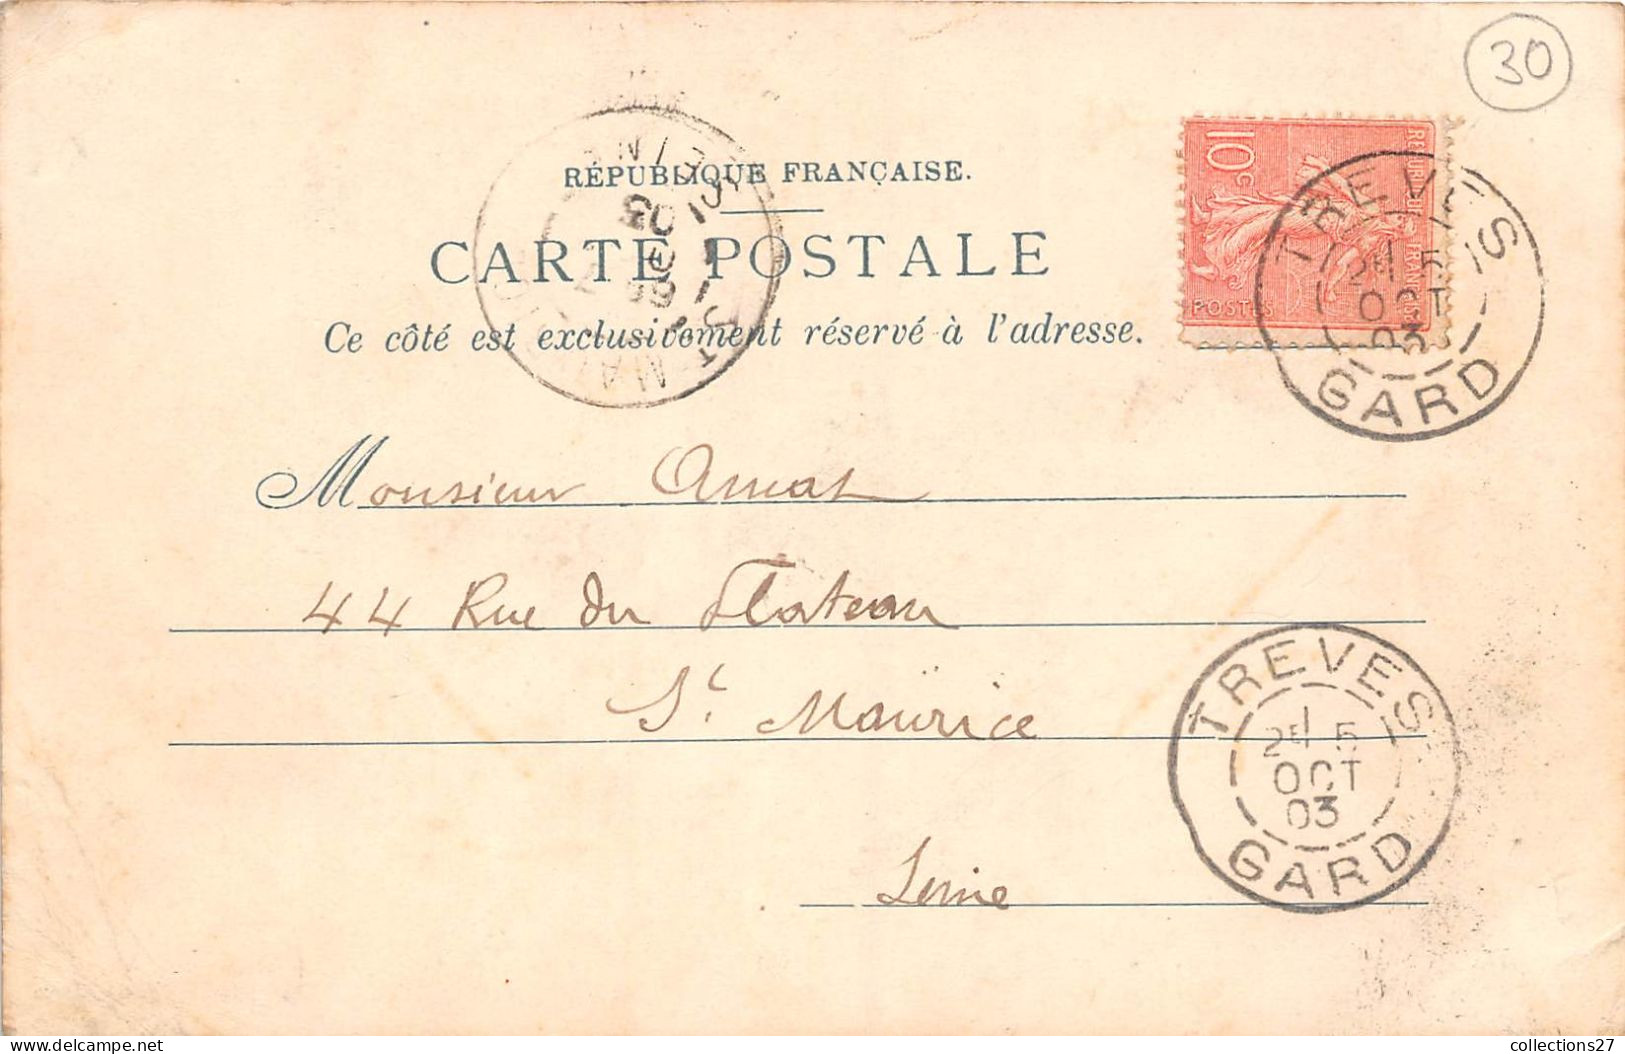 30
RÉPUBLIQUE FRANÇAISE.
CARTE POSTALE
Ce côté est exclusivement réservé à l'adresse.
10c
REPUBLIQUE FRANÇAISE
POSTES
TREVES
2E 5
OCT
03
GARD
03
Monsieur Amat
44 Rue du Plateau
St Maurice
Seine
TREVES
2E 5
OCT
03
GARD
collections27